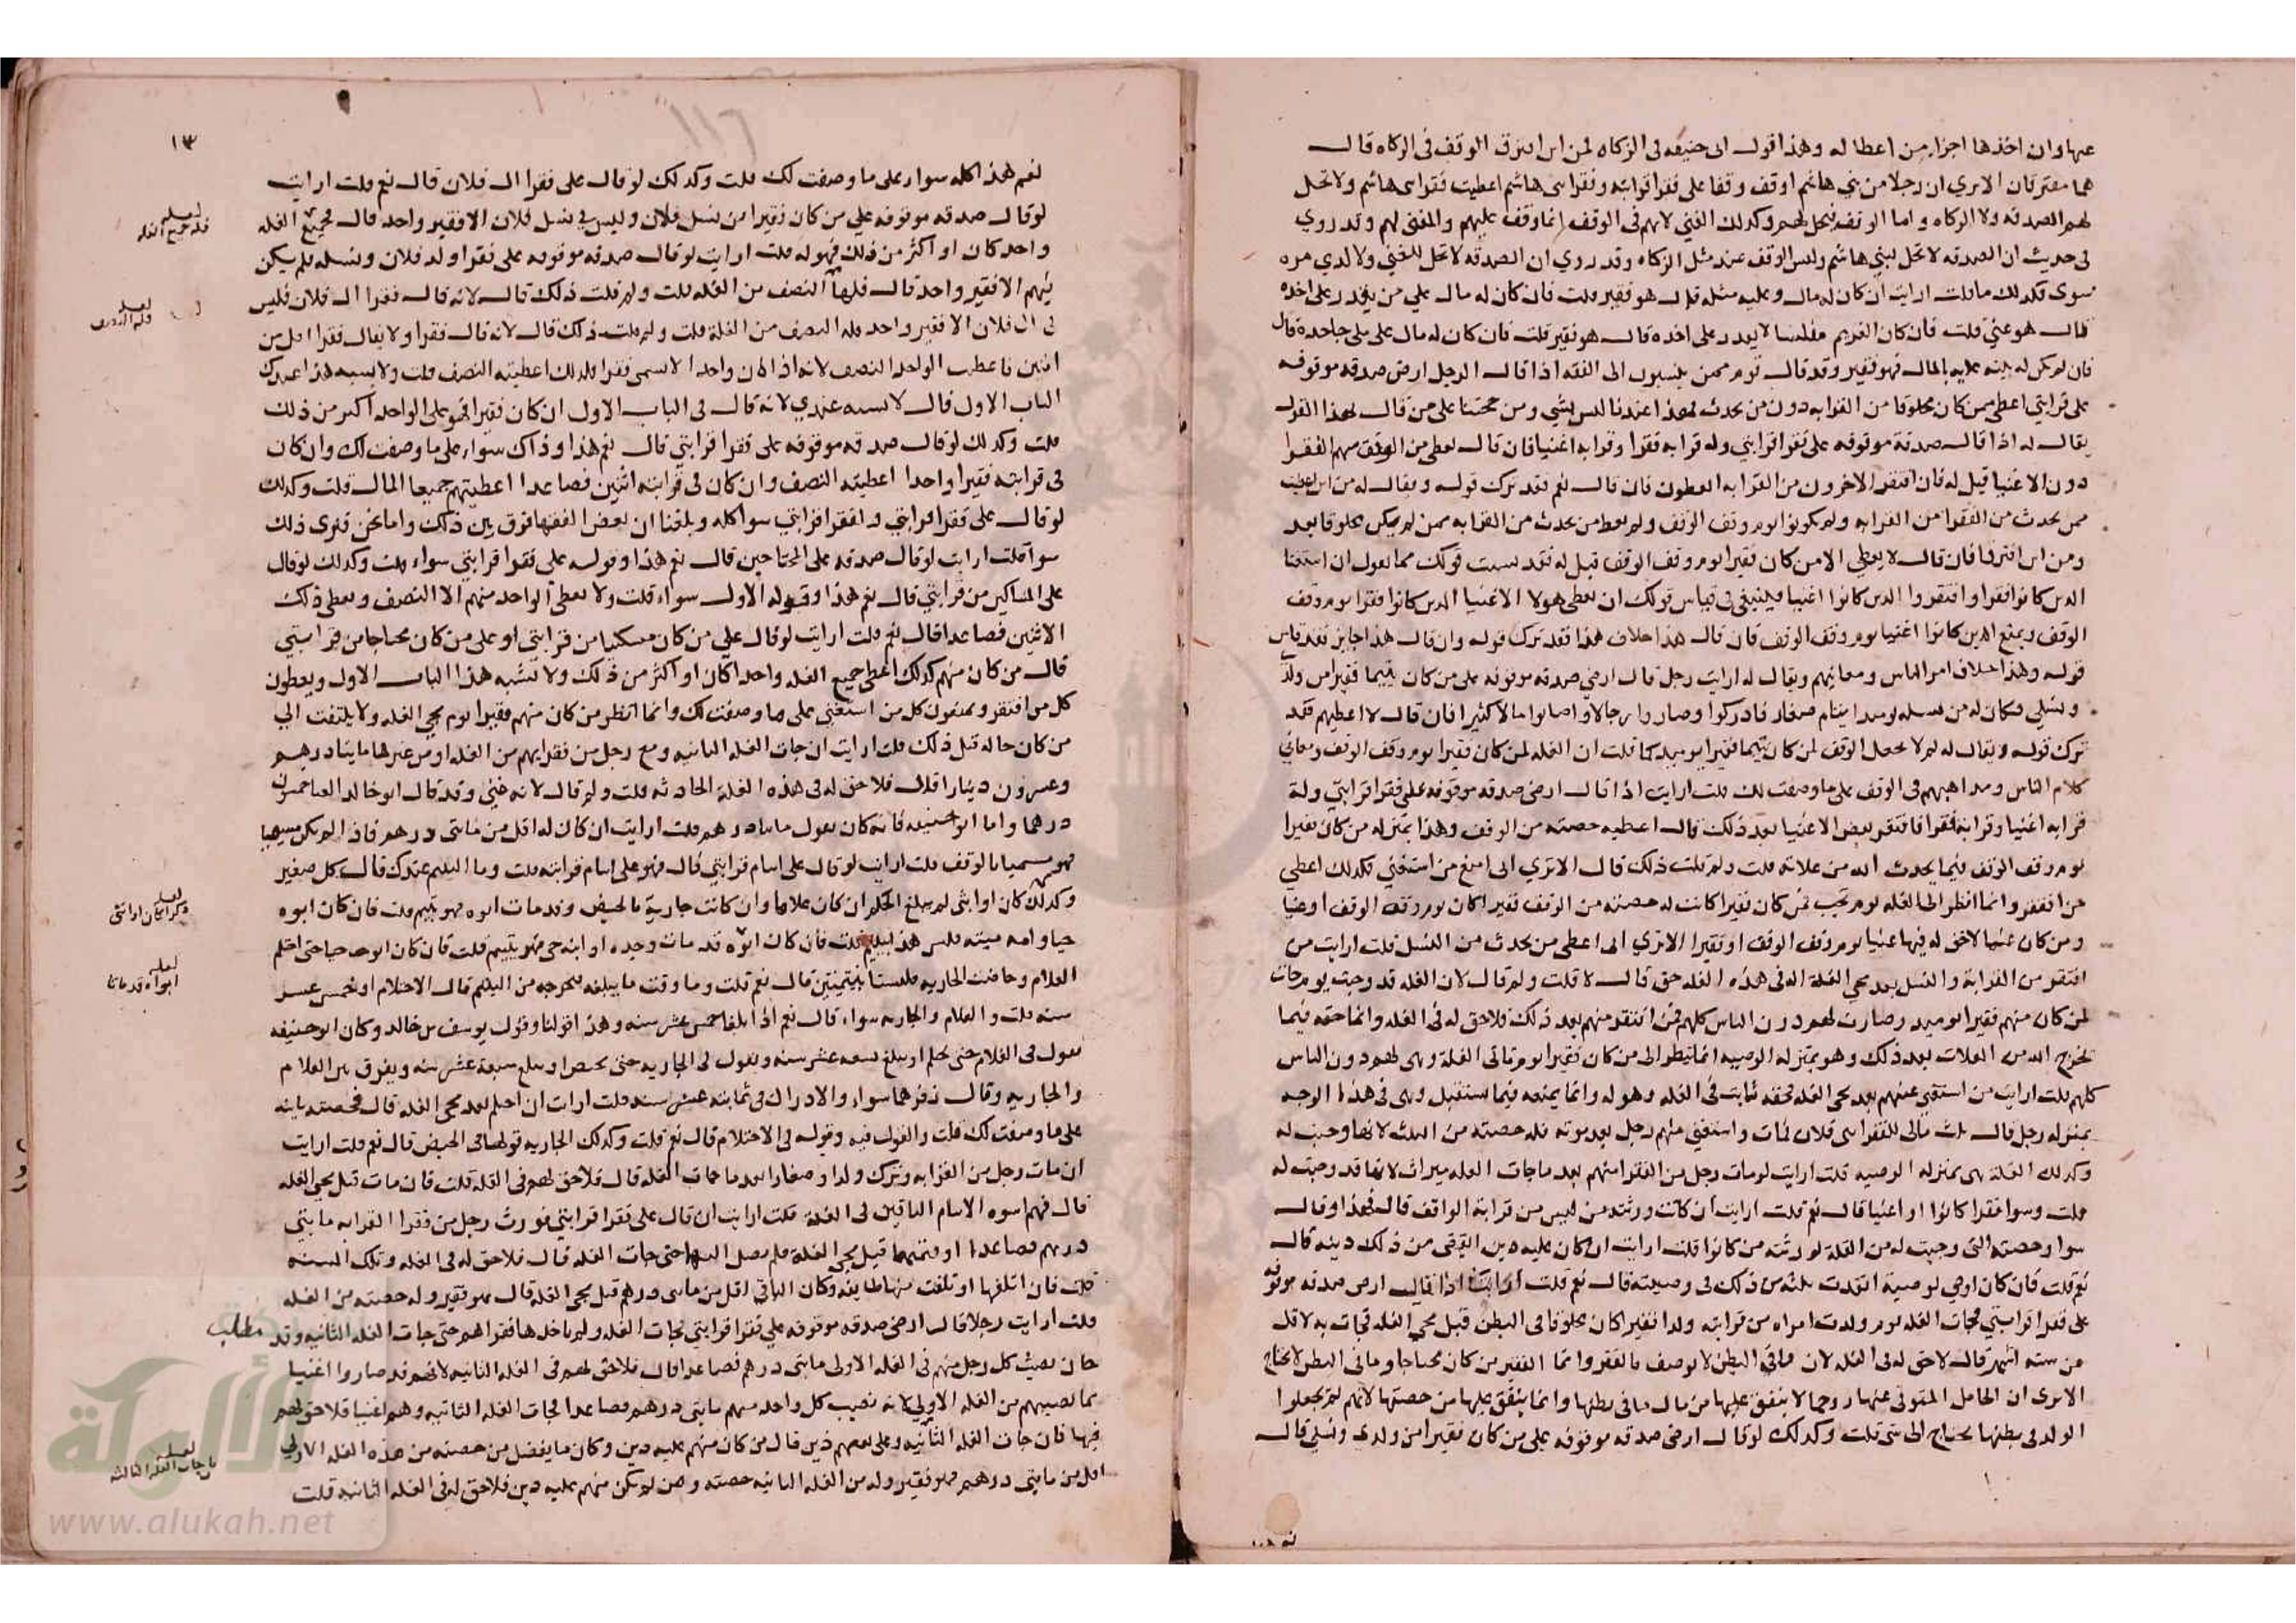 عنها وان اخذها اجزا من اعطاله وهذا قول ابي حنيفه في الزكاه فمن اين افترق الوقف في الزكاه قال
هما مفترقان الا ترى ان رجلا من بني هاشم اوقف وقفا على فقرا قرابته وفقرا بني هاشم اعطيت فقرا بني هاشم ولا تحل
لهم الصدقه ولا الزكاه واما الوقف فيحل لهم وكذلك الغني لانهم في الوقف انما وقف عليهم والغني لهم وقد روي
في حديث ان الصدقه لا تحل لبني هاشم وليس الوقف عند مثل الزكاه وقد روي ان الصدقه لا تحل للغني ولا لذي مره
سوى فكذلك ما قلت ارايت ان كان له مال وعليه مثله قال هو فقير قلت فان كان له مال على من يقدر على اخذه
قال هو غني قلت فان كان الغريم مفلسا لا يقدر على اخذه قال هو فقير قلت فان كان له مال على ملي جاحده قال
فان لم يكن له بينه عليه بالمال فهو فقير وقد قال قوم ممن ينسبون الى الفقه اذا قال الرجل ارضي صدقه موقوفه
على قرابتي اعطي من كان مخلوقا من القرابه دون من يحدث فهذا عندنا ليس بشي ومن حجتنا على من قال بهذا القول
يقال له اذا قال صدقة موقوفه على فقرا قرابتي وله قرابه فقرا وقرابه اغنيا فان قال يعطى من الوقف سهم الفقرا
دون الاغنيا قيل له فان افتقر الاخرون من القرابه ايعطون فان قال نعم فقد ترك قوله ويقال له من اين اعطيت
من يحدث من الفقرا من القرابه ولم يكونوا يوم وقف الوقف ولم يعط من يحدث من القرابه ممن لم يكن مخلوقا بعد
ومن اين افترقا فان قال لا يعطي الا من كان فقيرا يوم وقف الوقف قيل له فقد نسيت قولك فما تقول ان استغنا
الذين كانوا فقرا وافتقروا الذين كانوا اغنيا فينبغي في قياس قولك ان يعطى هولا الاغنيا الذين كانوا فقرا يوم وقف
الوقف ويمنع الذين كانوا اغنيا يوم وقف الوقف فان قال هذا خلاف هذا فقد ترك قوله وان قال هذا جايز فقد قاس
قوله وهذا خلاف امر الناس ومعانيهم ويقال له ارايت رجل قال ارضي صدقه موقوفه على من كان يتيما فقيرا من ولد
ونسلي فكان له من نسله يوميذ ايتام صغار فادركوا وصاروا رجالا واصابوا مالا كثيرا فان قال لا اعطيهم فقد
ترك قوله ويقال له لم لا تجعل الوقف لمن كان يتيما فقيرا يوميذ كما قلت ان الغله لمن كان فقيرا يوم وقف الوقف ومعاني
كلام الناس ومذاهبهم في الوقف على ما وصفت لك قلت ارايت اذا قال ارضي صدقه موقوفه على فقرا قرابتي وله
قرابه اغنيا وقرابه فقرا فافتقر بعض الاغنيا بعد ذلك قال اعطيه حصته من الوقف وهذا بمنزله من كان فقيرا
يوم وقف الوقف فيما يحدث الله من غلاته قلت ولم قلت ذلك قال الا تري اني امنع من استغني فكذلك اعطي
من افتقر وانما انظر الى الغله يوم تجب فمن كان فقيرا كانت له حصته من الوقف فقيرا كان يوم وقف الوقف او غنيا
ومن كان غنيا لا حق له فيها غنيا يوم وقف الوقف او فقيرا الا تري اني اعطي من يحدث من النسل قلت ارايت من
افتقر من القرابة والنسل بعد مجي الغلة اله في هذه الغله حق قال لا قلت ولم قال لان الغله قد وجبت يوم جات
لمن كان منهم فقيرا يوميذ وصارت لهم دون الناس كلهم فمن افتقر منهم بعد ذلك فلا حق له في الغله وانما حقه فيما
تخرج الله من الغلات بعد ذلك وهو بمنزله الوصيه انما ينظر الى من كان فقيرا يوم تاتي الغلة وهى لهم دون الناس
كلهم قلت ارايت من استغنى منهم بعد مجي الغله فحقه ثابت في الغله وهو له وانما يمنعه فيما يستقبل وهى في هذا الوجه
بمنزله رجل قال ثلث مالي للفقرا بني فلان فمات واستغنى منهم رجل بعد موته فله حصته من الثلث لانها وجبت له
وكذلك الغلة هى بمنزله الوصيه قلت ارايت لو مات رجل من الفقرا منهم بعد ما جات الغله ميراث لانها قد وجبت له
قلت وسوا فقرا كانوا او اغنيا قال نعم قلت ارايت ان كانت ورثته من ليس من قرابة الواقف قال فهذا وقال
سوا وحصته التي وجبت له من الغلة لورثته من كانوا قلت ارايت ان كان عليه دين القضى من ذلك دينه قال
نعم قلت فان كان اوصي لوصية انفدت ثلثه من ذلك في وصيته قال نعم قلت ارايت اذا قال ارضي صدقه موقوفه
على فقرا قرابتي فجات الغله يوم ولدت امراه من قرابته ولدا فقيرا كان مخلوقا في البطن قبل مجي الغله فجات به لاقل
من سته اشهر قال لا حق له في الغله لان ما في البطن لا يوصف بالفقر وانما الفقير من كان محتاجا وما في البطن لا يحتاج
الا ترى ان الحامل المتوفي عنها زوجها لا ينفق عليها من مال ما في بطنها وانما ينفق عليها من حصتها لانهم لم يجعلوا
الولد في بطنها يحتاج الى شي قلت وكذلك لو قال ارضي صدقه موقوفه على من كان فقيرا من ولدي ونسلي قال
نعم هذا
١٣
نعم هذا كله سوا على ما وصفت لك قلت وكذلك لو قال على فقرا ال فلان قال نعم قلت ارايت
لو قال صدقه موقوفه علي من كان فقيرا من نسل فلان وليس في نسل فلان الا فقير واحد قال فجميع الغله
لعله فله جميع الغله
واحد كان او اكثر من ذلك فهو له قلت ارايت لو قال صدقه موقوفه على فقرا ولد فلان ونسله فلم يكن
فيهم الا فقير واحد قال فلها النصف من الغله قلت ولم قلت ذلك قال لانه قال فقرا ال فلان فليس
لعله فله النصف
في ال فلان الا فقير واحد فله النصف من الغلة قلت ولم قلت ذلك قال لانه قال فقرا ولا يقال فقرا اقل من
اثنين فاعطيت الواحد النصف لانه اذا كان واحدا لا يسمى فقرا فلذلك اعطيته النصف قلت ولا يشبه هذا عندك
الباب الاول قال لا يشبه عندي لانه قال في الباب الاول ان كان فقيرا فهو على الواحد اكثر من ذلك
قلت وكذلك لو قال صدقه موقوفه على فقرا قرابتي قال نعم هذا وذاك سواء على ما وصفت لك وان كان
في قرابته فقيرا واحدا اعطيته النصف وان كان في قرابته اثنين فصاعدا اعطيتهم جميعا المال قلت وكذلك
لو قال على فقرا قرابتي ولفقرا قرابتي سوا كله وبلغنا ان بعض الفقها فرق بين ذلك واما نحن فنرى ذلك
سوا قلت ارايت لو قال صدقه على المحتاجين قال نعم هذا وقوله على فقرا قرابتي سواء قلت وكذلك لو قال
على المساكين من قرابتي قال نعم هذا وقوله الاول سواء قلت ولا يعطى الواحد منهم الا النصف ويعطى ذلك
الاثنين فصاعدا قال نعم قلت ارايت لو قال علي من كان مسكينا من قرابتي او على من كان محتاجا من قرابتي
قال من كان منهم كذلك اعطي جميع الغله واحدا كان او اكثر من ذلك ولا يشبه هذا الباب الاول ويعطون
كل من افتقر ويمنعون كل من استغني على ما وصفت لك وانما انظر من كان منهم فقيرا يوم مجي الغله ولا يلتفت الى
من كان حاله قبل ذلك قلت ارايت ان جات الغله الثانيه ومع رجل من فقرايهم من الغله او من غيرها مايتا درهم
وعشرون دينارا قال فلا حق له في هذه الغلة الحادثه قلت ولم قال لانه غني وقد قال ابو خالد العامري
درهما واما ابو حنيفه فانه كان يقول مايتا درهم قلت ارايت ان كان له اقل من مايتي درهم فاذا لم يكن
قلت ارايت لو قال على ايتام قرابتي قال فهو على ايتام قرابته قلت وما اليتيم عندك قال كل صغير
وكذلك كان او انثى لم يبلغ الحلم ان كان غلاما وان كانت جارية بالحيض وقد مات ابوه فهو يتيم قلت فان كان ابوه
لعله ذكرا كان او انثى
حيا وامه ميته فليس هذا بيتيم قلت فان كان ابوه قد مات وجده او ابنه حي فهو يتيم قلت فان كان ابوهما حيا حتى احتلم
لعله ابواه قد ماتا
الغلام وحاضت الجاريه فليستا بيتيمتين قال نعم قلت وما وقت ما يبلغه فتخرجه من اليتيم قال الاحتلام او خمس عشر
سنه قلت والغلام والجاريه سواء قال نعم اذا بلغا خمس عشر سنه وهذا قولنا وقول يوسف بن خالد وكان ابو حنيفه
يقول في الغلام حتى يحتلم او يبلغ تسعه عشر سنه ويقول في الجاريه حتى تحيض او يبلغ سبعة عشر سنه ويفرق بين الغلام
والجاريه وقال زفر هما سواء والادراك في ثمانية عشر سنه قلت ارايت ان احتلم بعد مجى الغله قال فحصته ثابته
على ما وصفت لك قلت والقول فيه وقوله في الاحتلام قال نعم قلت وكذلك الجاريه قولها في الحيض قال نعم قلت ارايت
ان مات رجل من القرابه وترك ولدا وصغارا بعد ما جات الغله قال فلا حق لهم في الغله قلت فان مات قبل مجي الغله
قال فهم اسوه الايتام الباقين في الغلة قلت ارايت ان قال على فقرا قرابتي فورث رجل من فقرا القرابه مايتي
درهم فصاعدا او قيمتهما قبل مجي الغلة فلم يصل اليها حتى جات الغله قال فلا حق له في الغله وتلك السنه
قلت فان اتلفها او تلفت منها طايفه وكان الباقي اقل من مايتي درهم قبل مجي الغله قال فهو فقير وله حصته من الغله
قلت ارايت رجلا قال ارضي صدقه موقوفه على فقرا قرابتي فجات الغله ولم ياخذها فقراهم حتى جات الغله الثانيه وقد
مطلب
كان يصيب كل رجل منهم في الغله الاولى مايتي درهم فصاعدا قال فلا حق لهم في الغله الثانيه لانهم قد صاروا اغنيا
بما يصيبهم من الغله الاولى لانه نصيب كل واحد منهم مايتي درهم فصاعدا فجات الغله الثانيه وهم اغنيا فلا حق لهم
فيها فان جات الغله الثانيه وعلى بعضهم دين قال من كان منهم عليه دين وكان ما يفضل من حصته من هذه الغله الاولي
لعله فان جات الغله الثالثه
اقل من مايتي درهم فهو فقير وله من الغله الثانيه حصته ومن لم يكن منهم عليه دين فلا حق له في الغله الثانيه قلت
الألوكة
www.alukah.net